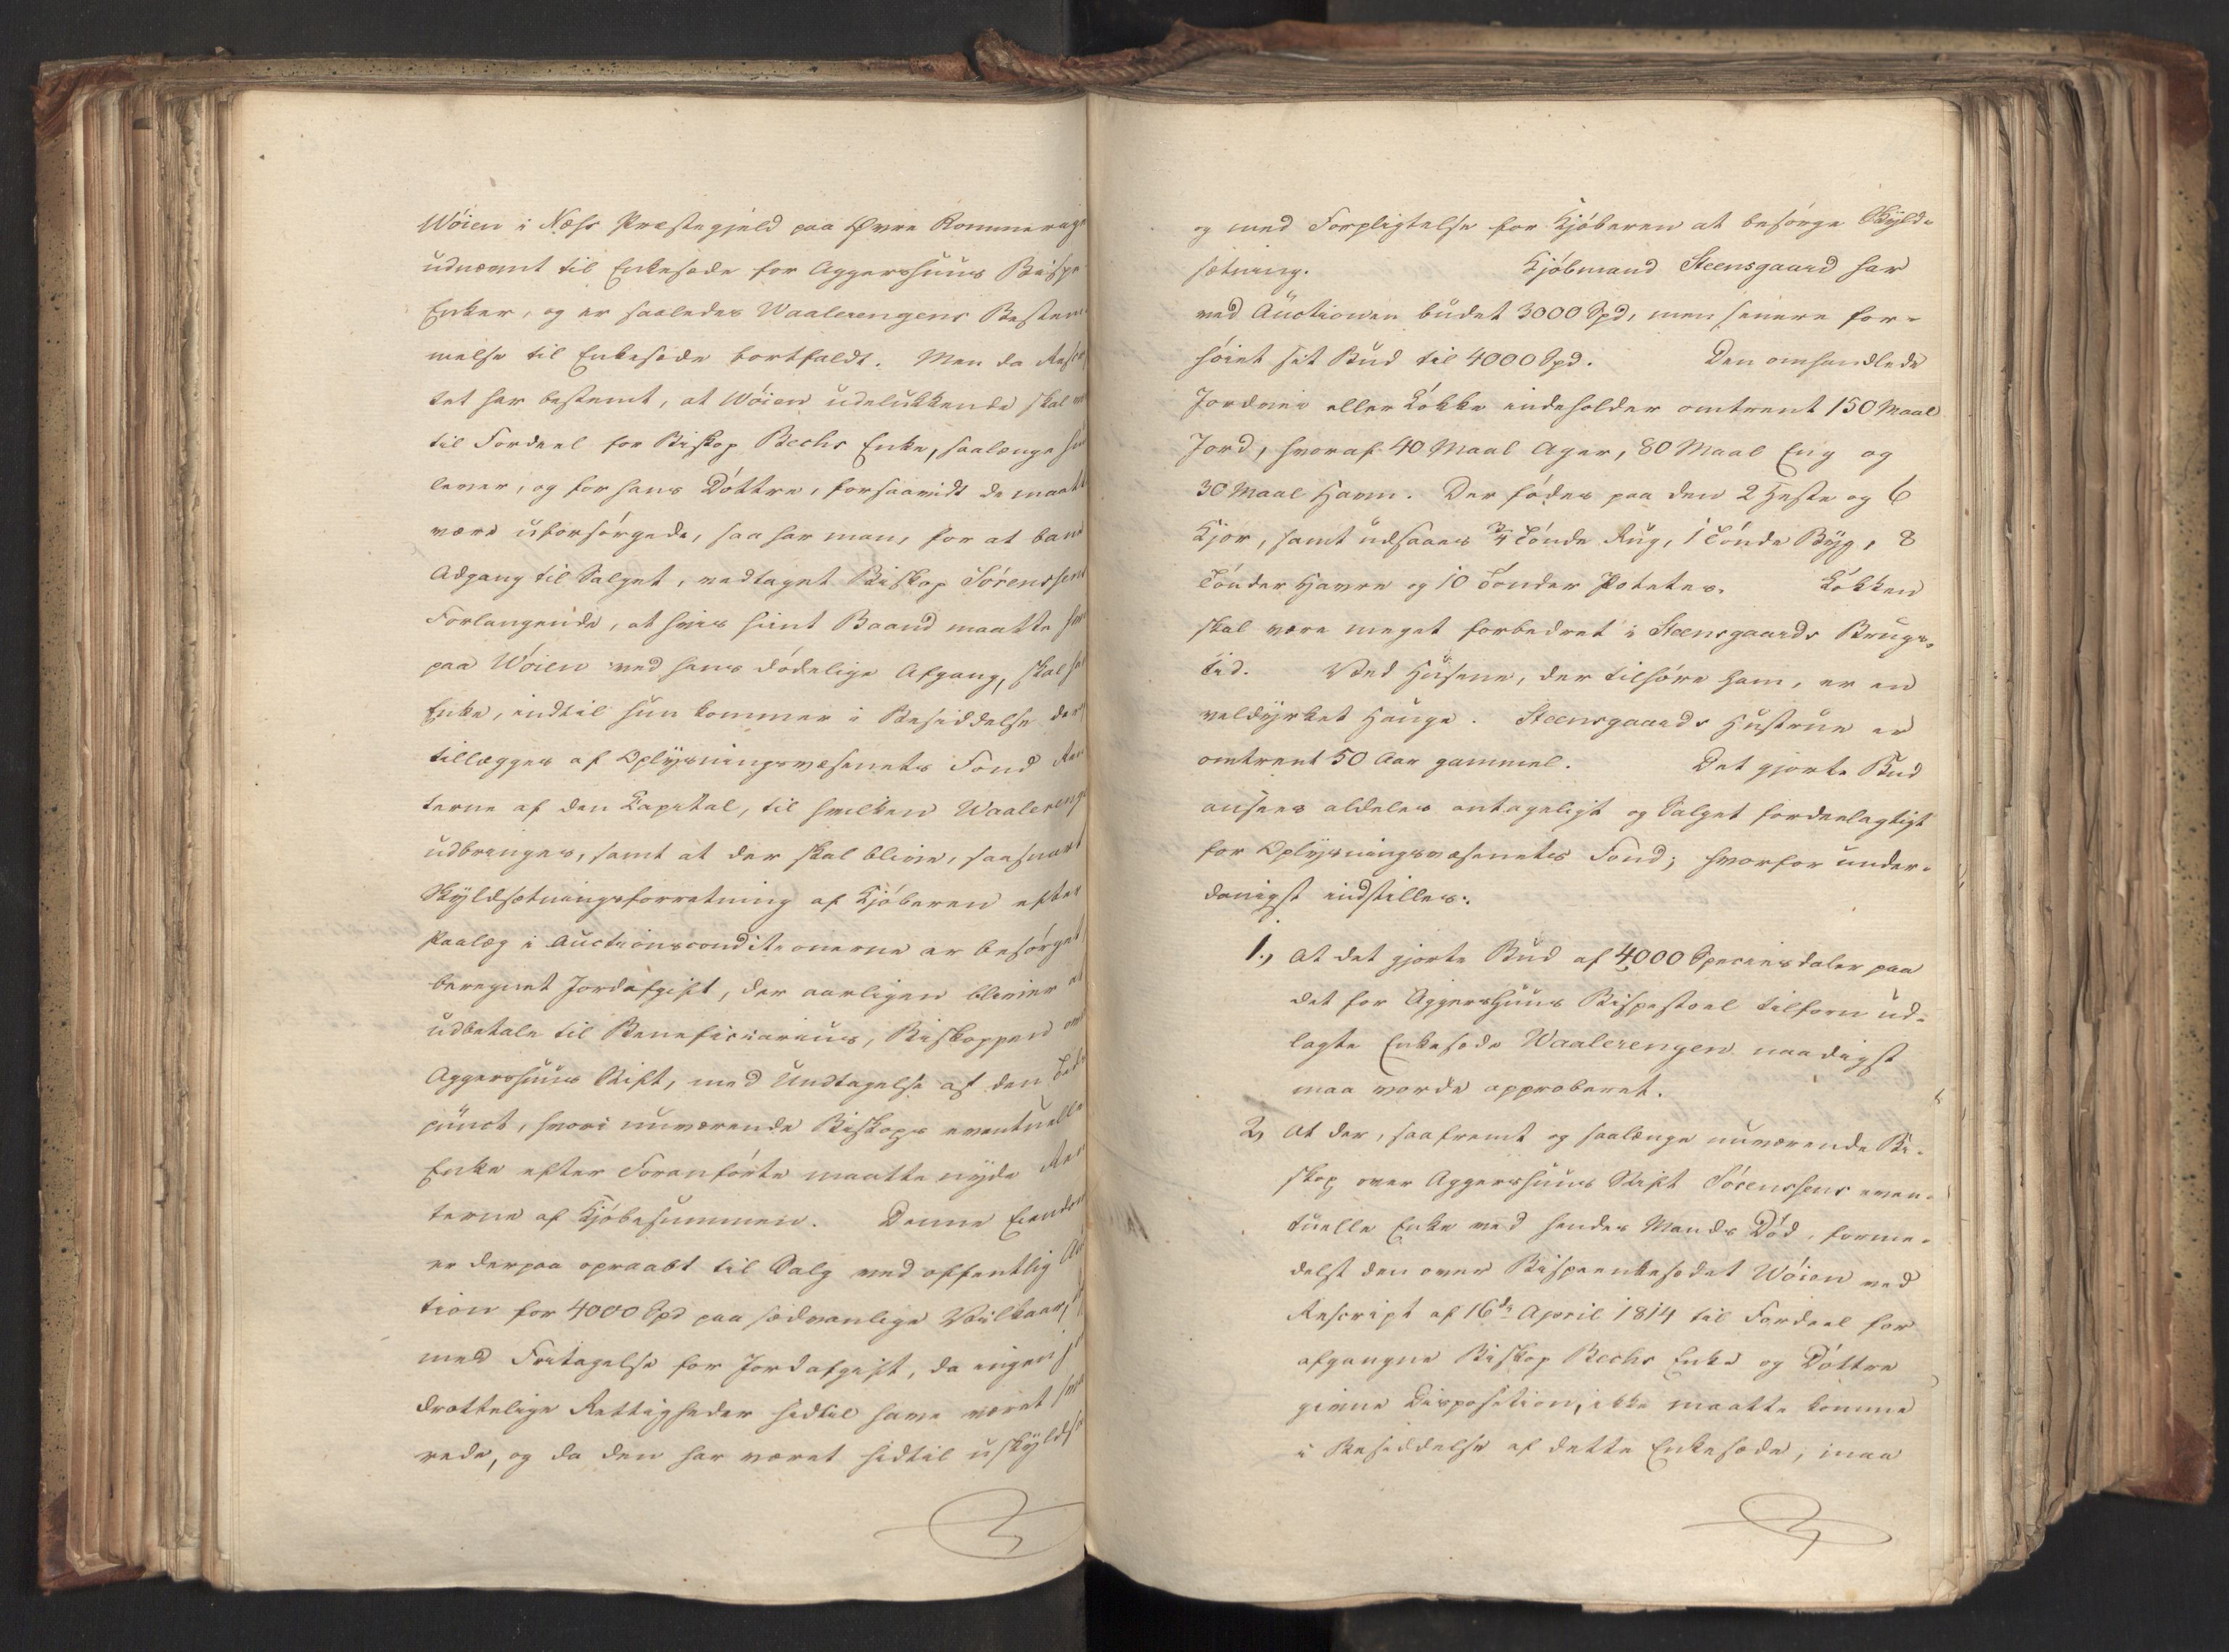 Wöien i Næss Præstegjeld paa Øvre Rommerige
udnævnt til Enkesæde for Aggershuus Bispe
Enker, og er saaledes Waalerengens Bestem
melse til Enkesæde bortfaldt. Men da Rescr
tet har bestemt, at Wöien udelukkende skal
til Fordeel for Biskop Bechs Enke, saalænge
lever, og for hans Döttre, forsaavidt de maatt
være uforsörgede, saa har man, for at bane
Adgang til Salget, vedtaget Biskop Sörenssens
Forlangende, at hvis hiint Baand maatte
paa Wöien ved hans dödelige Afgang, skal
Enke, indtil hun kommer i Besiddelse
tillægges af Oplysningsvæsenets Fond Ren
terne af den Kapital, til hvilken Waalereng
udbringes, samt at der skal blive, saasnart
Skyldsætningsforretning af Kjöberen efter
Paalæg i Auctionsconditionerne er besörget
beregnet Jordafgift, der aarligen bliver at
udbetale til Beneficiarius, Biskoppen over
Aggershuus Stift, med Undtagelse af den Tids
punct, hvori nuværende Biskops eventuelle
Enke efter Foranförte maatte nyde Ren
terne af Kjöbesummen. Denne Eiendom
er derpaa opraabt til Salg ved offentlig Auc
tion for 4000 Spd paa sædvanlige Vilkaar,
med Fritagelse for Jordafgift, da ingen j
drottelige Rettigheder hidtil have været
rede, og da den har været hidtil uskylds
og med Forpligtelse for Kjöberen at besörge Skyld-
sætning. Kjöbmand Steensgaard har
ved Auctionen budet 3000 Spd, men senere for-
höiet sit Bud til 4000 Spd. Den omhandlede
Jordvei eller Lökke indeholder omtrent 150 Maal
Jord, hvoraf 40 Maal Ager, 80 Maal Eng og
30 Maal Havn. Der födes paa den 2 Heste og 6
Kjør, samt udsaaes 3/4 Tönde Rug, 1 Tönde Byg, 8
Tönder Havre og 10 Tönder Potetes. Lökken
skal være meget forbedret i Steensgaards Brugs-
tid. Ved Husene, der tilhöre ham, er en
veldyrket Hauge. Steensgaards Hustrue er
omtrent 50 Aar gammel. Det gjorte Bud
ansees aldeles antageligt og Salget fordeelagtigt
for Oplysningsvæsenets Fond; hvorfor under-
danigst indstilles:
1., At det gjorte Bud af 4000 Speciesdaler paa
det for Aggershuus Bispestoel tilforn ud-
lagte Enkesæde Waalerengen naadigst
maa vorde approberet.
2, At der, saafremt og saalænge nuværende Bi-
skop over Aggershuus Stift Sörenssens even-
tuelle Enke ved hendes Mands Död, forme-
delst den over Bispeenkesædet Wöien ved
Rescript af 16de April 1814 til Fordeel for
afgangne Biskop Bechs Enke og Döttre
givne Disposition, ikke maatte komme
i Besiddelse af dette Enkesæde, maa